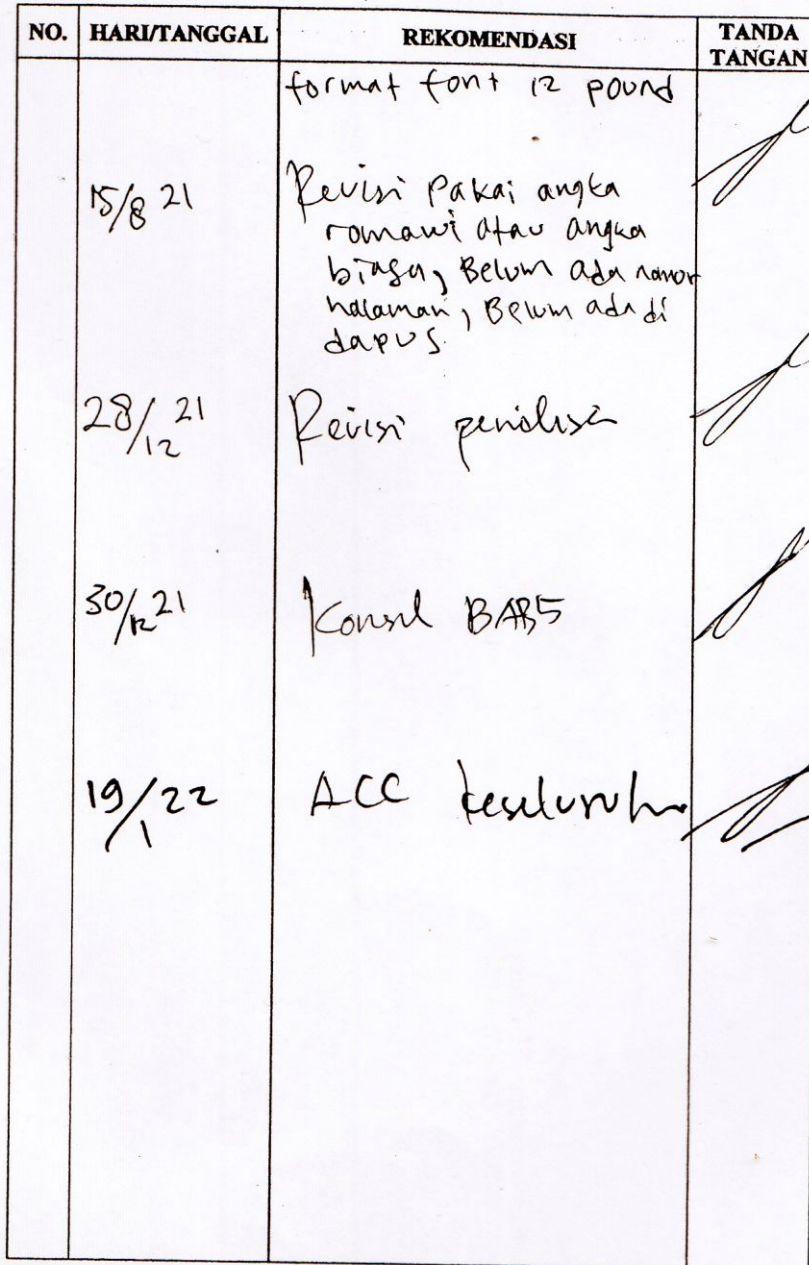 NO. HARI/TANGGAL REKOMENDASI TANDA TANGAN
format font 12 pound
15/8 21 Revisi pakai angka
romawi atau angka
biasa, Belum ada nomor
halaman, Belum ada di
dapus
28/12 21 Revisi penulisan
30/12 21 Konsul BAB5
19/1 22 ACC keseluruhan